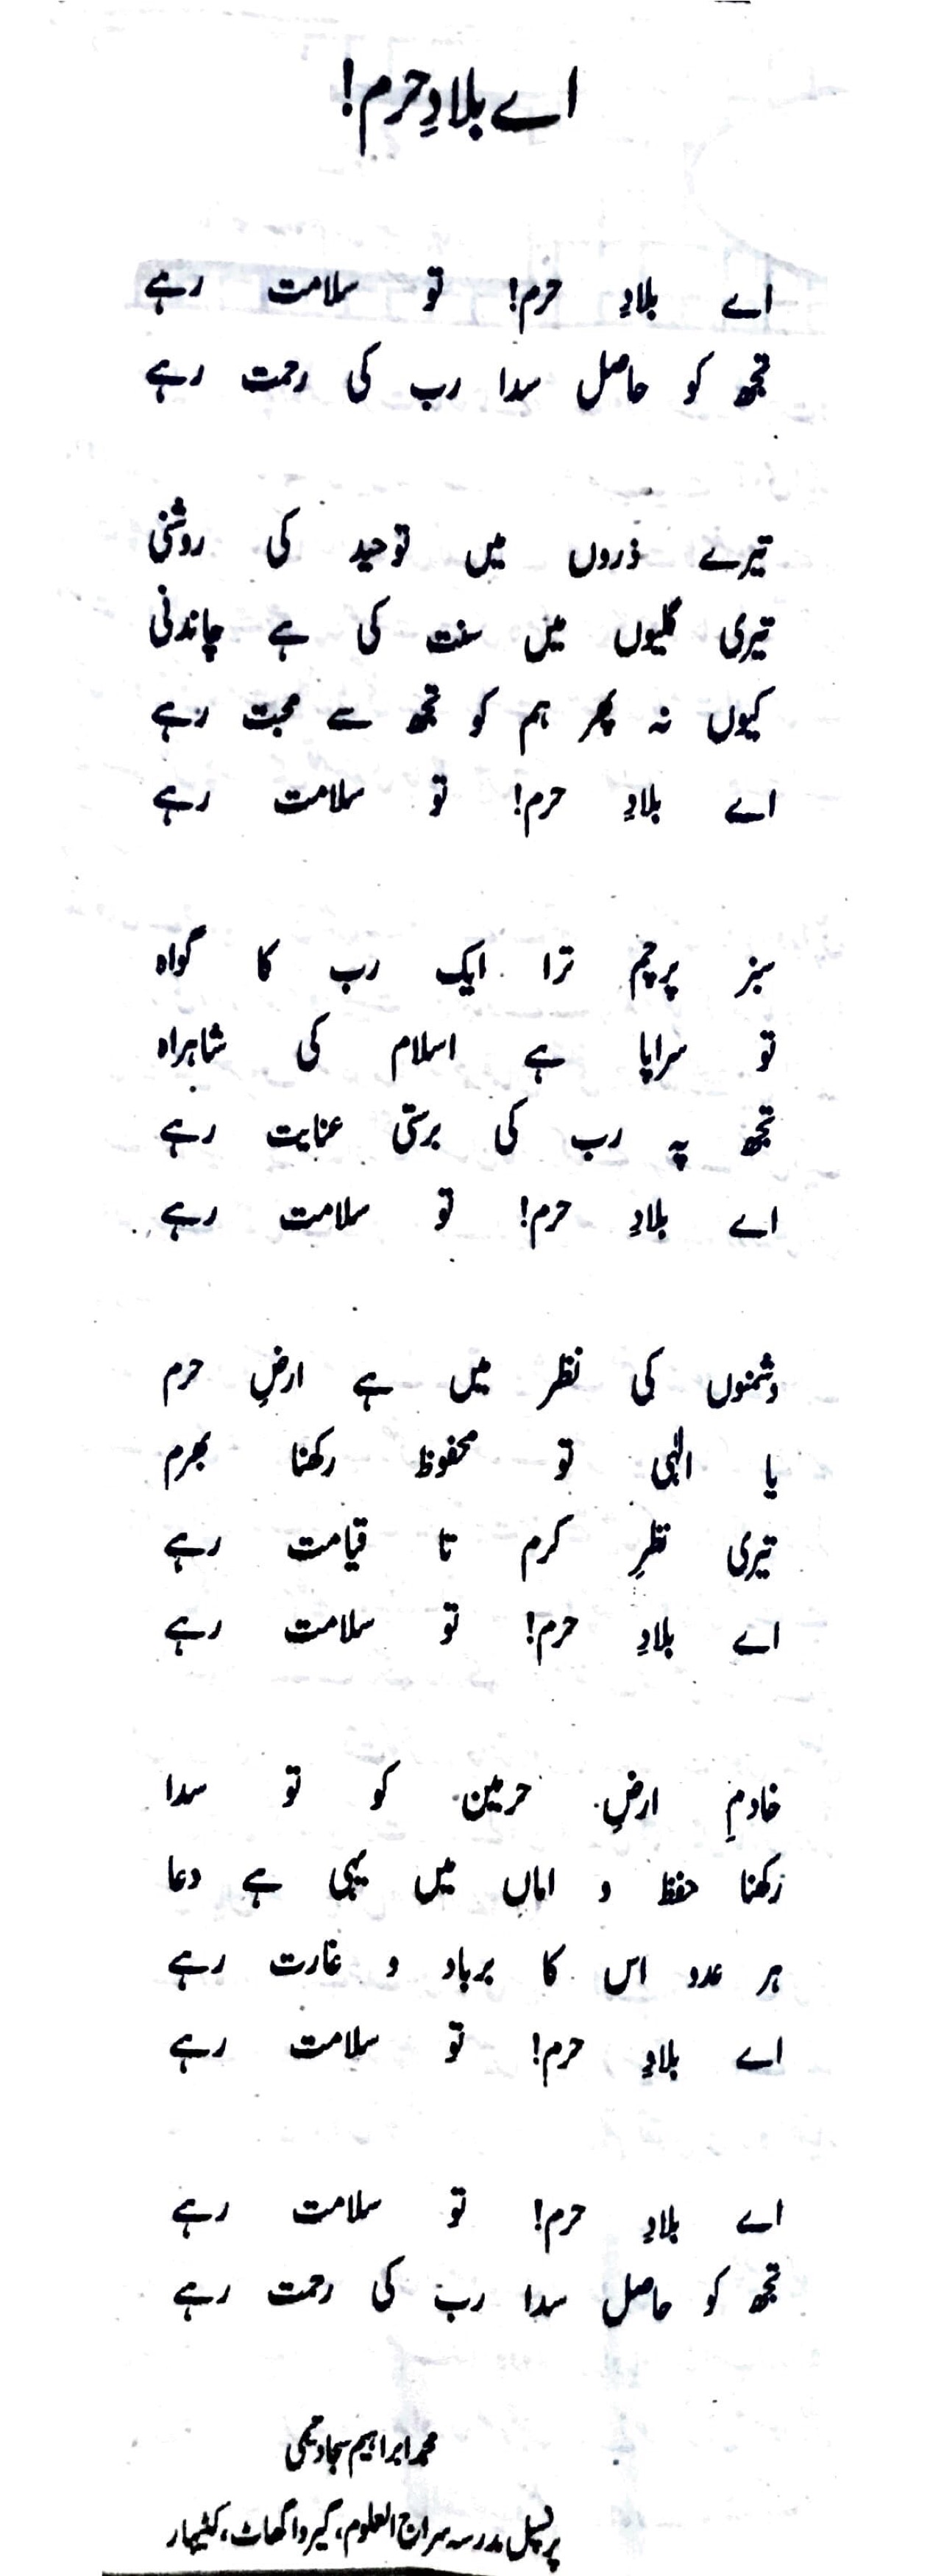 اے بلادِ حرم!
اے بلادِ حرم! تو سلامت رہے
تجھ کو حاصل سدا رب کی رحمت رہے
تیرے ذروں میں توحید کی روشنی
تیری گلیوں میں سنت کی ہے چاندنی
کیوں نہ پھر ہم کو تجھ سے محبت رہے
اے بلادِ حرم! تو سلامت رہے
سبز پرچم ترا ایک رب کا گواہ
تو سراپا ہے اسلام کی شاہراہ
تجھ پہ رب کی برستی عنایت رہے
اے بلادِ حرم! تو سلامت رہے
دشمنوں کی نظر میں ہے ارضِ حرم
یا الٰہی تو محفوظ رکھنا بھرم
تیری نظرِ کرم تا قیامت رہے
اے بلادِ حرم! تو سلامت رہے
خادمِ ارضِ حرمین کو تو سدا
رکھنا حفظ و اماں میں یہی ہے دعا
ہر عدو اس کا برباد و غارت رہے
اے بلادِ حرم! تو سلامت رہے
اے بلادِ حرم! تو سلامت رہے
تجھ کو حاصل سدا رب کی رحمت رہے
محمد ابراہیم سجاد تیمی
پرنسپل مدرسہ سراج العلوم، گیرواگھاٹ، کٹیہار